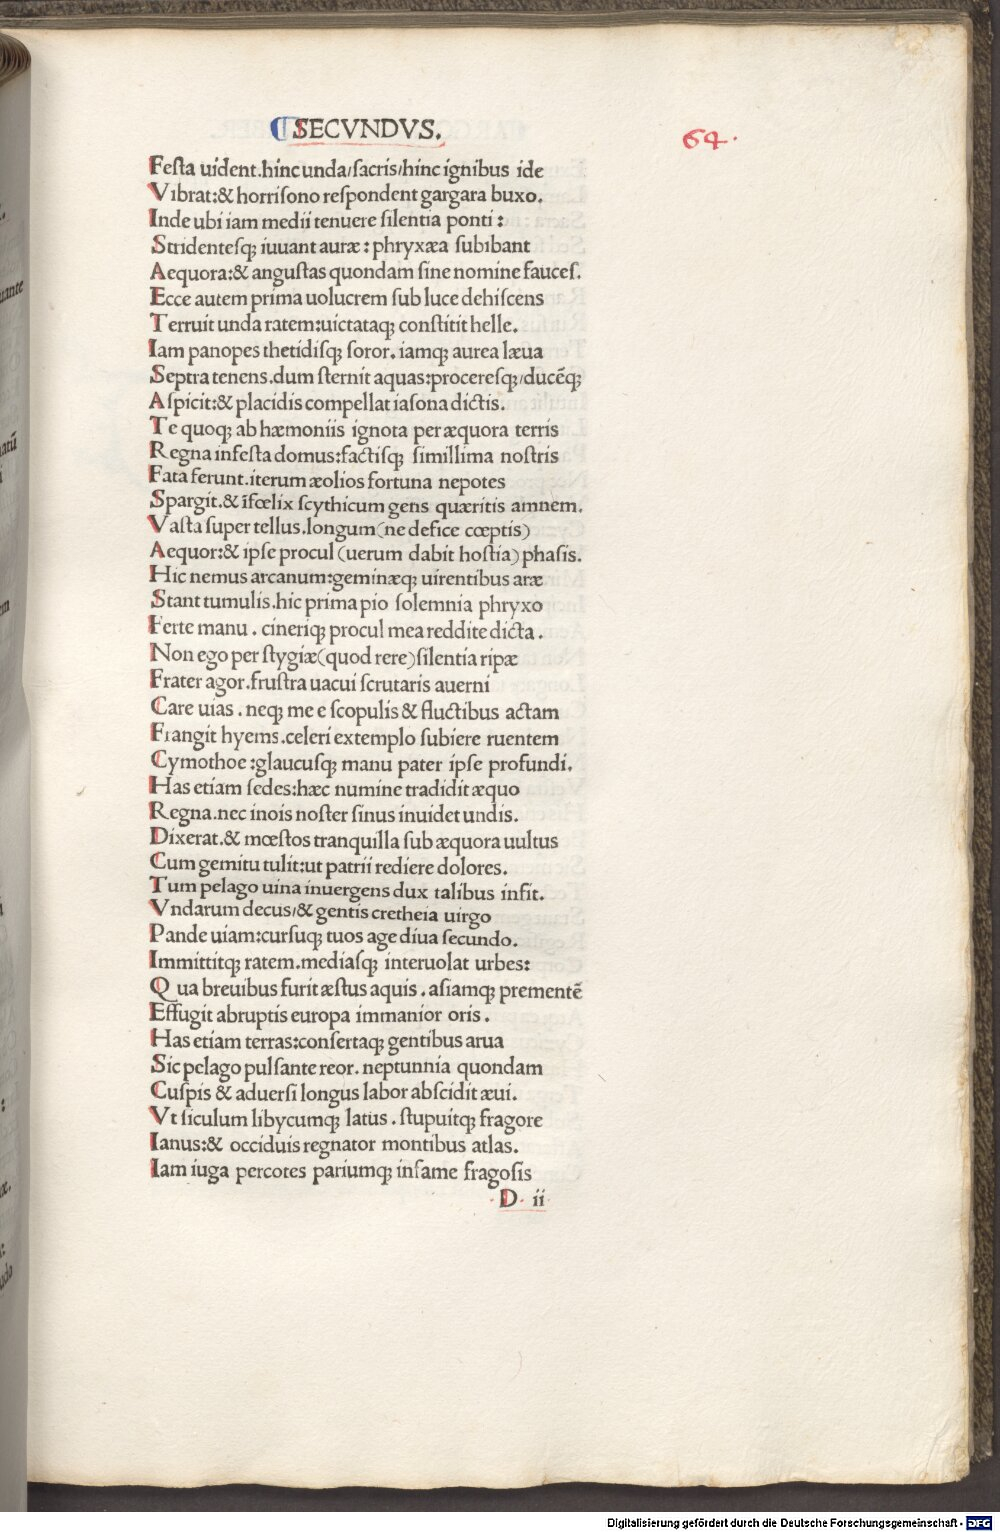 SECVNDVS.
64.
Festa uident.hinc unda/sacris/hinc ignibus ide
Vibrat:& horrisono respondent gargara buxo.
Inde ubi iam medii tenuere silentia ponti:
Stridentesq; iuuant auræ: phryxæa subibant
Aequora:& angustas quondam sine nomine fauces.
Ecce autem prima uolucrem sub luce dehiscens
Terruit unda ratem:uictataq; constitit helle.
Iam panopes thetidisq; soror. iamq; aurea læua
Septra tenens.dum sternit aquas:proceresq;/ducēq;
Aspicit:& placidis compellat iasona dictis.
Te quoq; ab hæmoniis ignota per æquora terris
Regna infesta domus:factisq; simillima nostris
Fata ferunt.iterum æolios fortuna nepotes
Spargit.& īfœlix scythicum gens quæritis amnem.
Vasta super tellus.longum(ne defice cœptis)
Aequor:& ipse procul (uerum dabit hostia) phasis.
Hic nemus arcanum:geminæq; uirentibus aræ
Stant tumulis.hic prima pio solemnia phryxo
Ferte manu. cineriq; procul mea reddite dicta.
Non ego per stygiæ(quod rere)silentia ripæ
Frater agor.frustra uacui scrutaris auerni
Care uias. neq; me e scopulis & fluctibus actam
Frangit hyems.celeri extemplo subiere ruentem
Cymothoe:glaucusq; manu pater ipse profundi.
Has etiam sedes:hæc numine tradidit æquo
Regna.nec inois noster sinus inuidet undis.
Dixerat.& mœstos tranquilla sub æquora uultus
Cum gemitu tulit:ut patrii rediere dolores.
Tum pelago uina inuergens dux talibus infit.
Vndarum decus/& gentis cretheia uirgo
Pande uiam:cursuq; tuos age diua secundo.
Immittitq; ratem.mediasq; interuolat urbes:
Qua breuibus furit æstus aquis. asiamq; prementē
Effugit abruptis europa immanior oris.
Has etiam terras:consertaq; gentibus arua
Sic pelago pulsante reor. neptunnia quondam
Cuspis & aduersi longus labor abscidit æui.
Vt siculum libycumq; latus. stupuitq; fragore
Ianus:& occiduis regnator montibus atlas.
Iam iuga percotes pariumq; infame fragosis
D ii
Digitalisierung gefördert durch die Deutsche Forschungsgemeinschaft - DFG